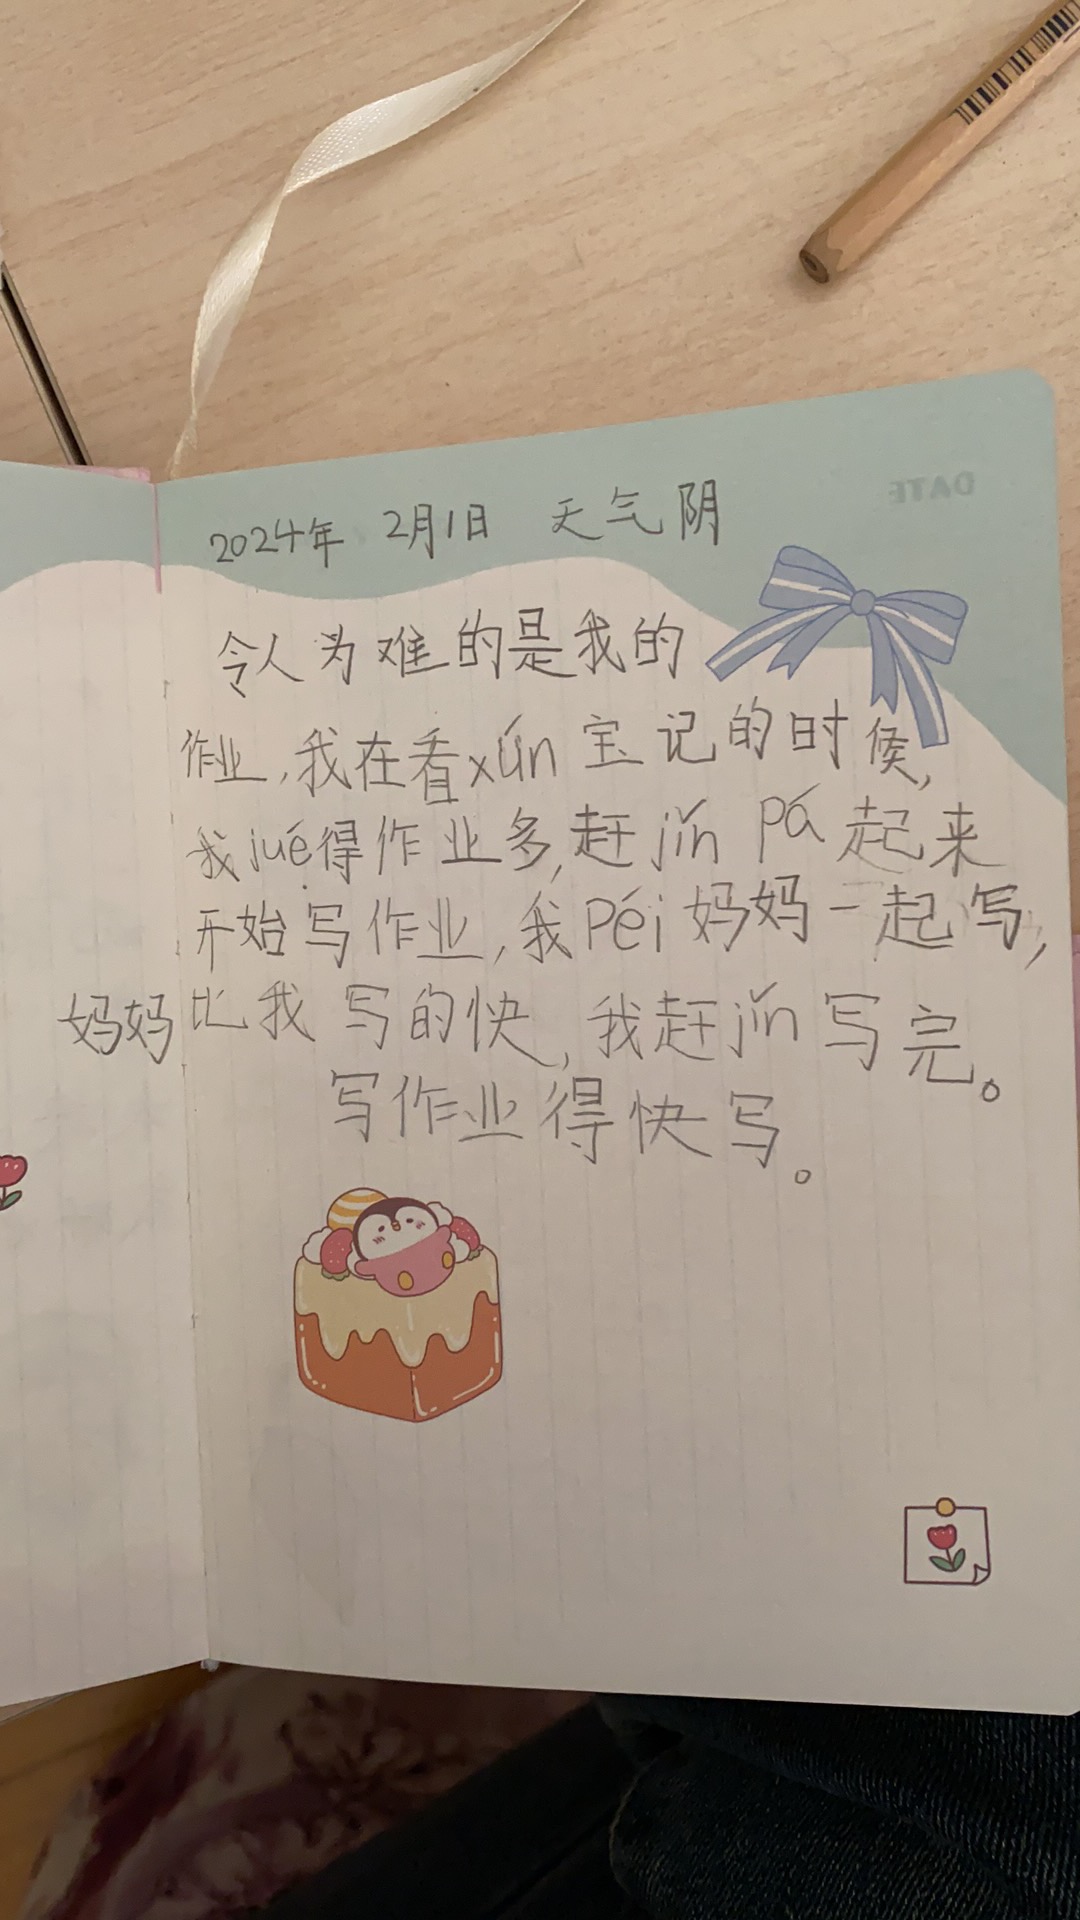 DATE
2024年 2月1日 天气阴
令人为难的是我的
作业,我在看xún宝记的时候,
我jué得作业多,赶jǐn pá起来
开始写作业,我Péi妈妈一起写,
妈妈比我写的快,我赶jǐn写完。
写作业得快写。